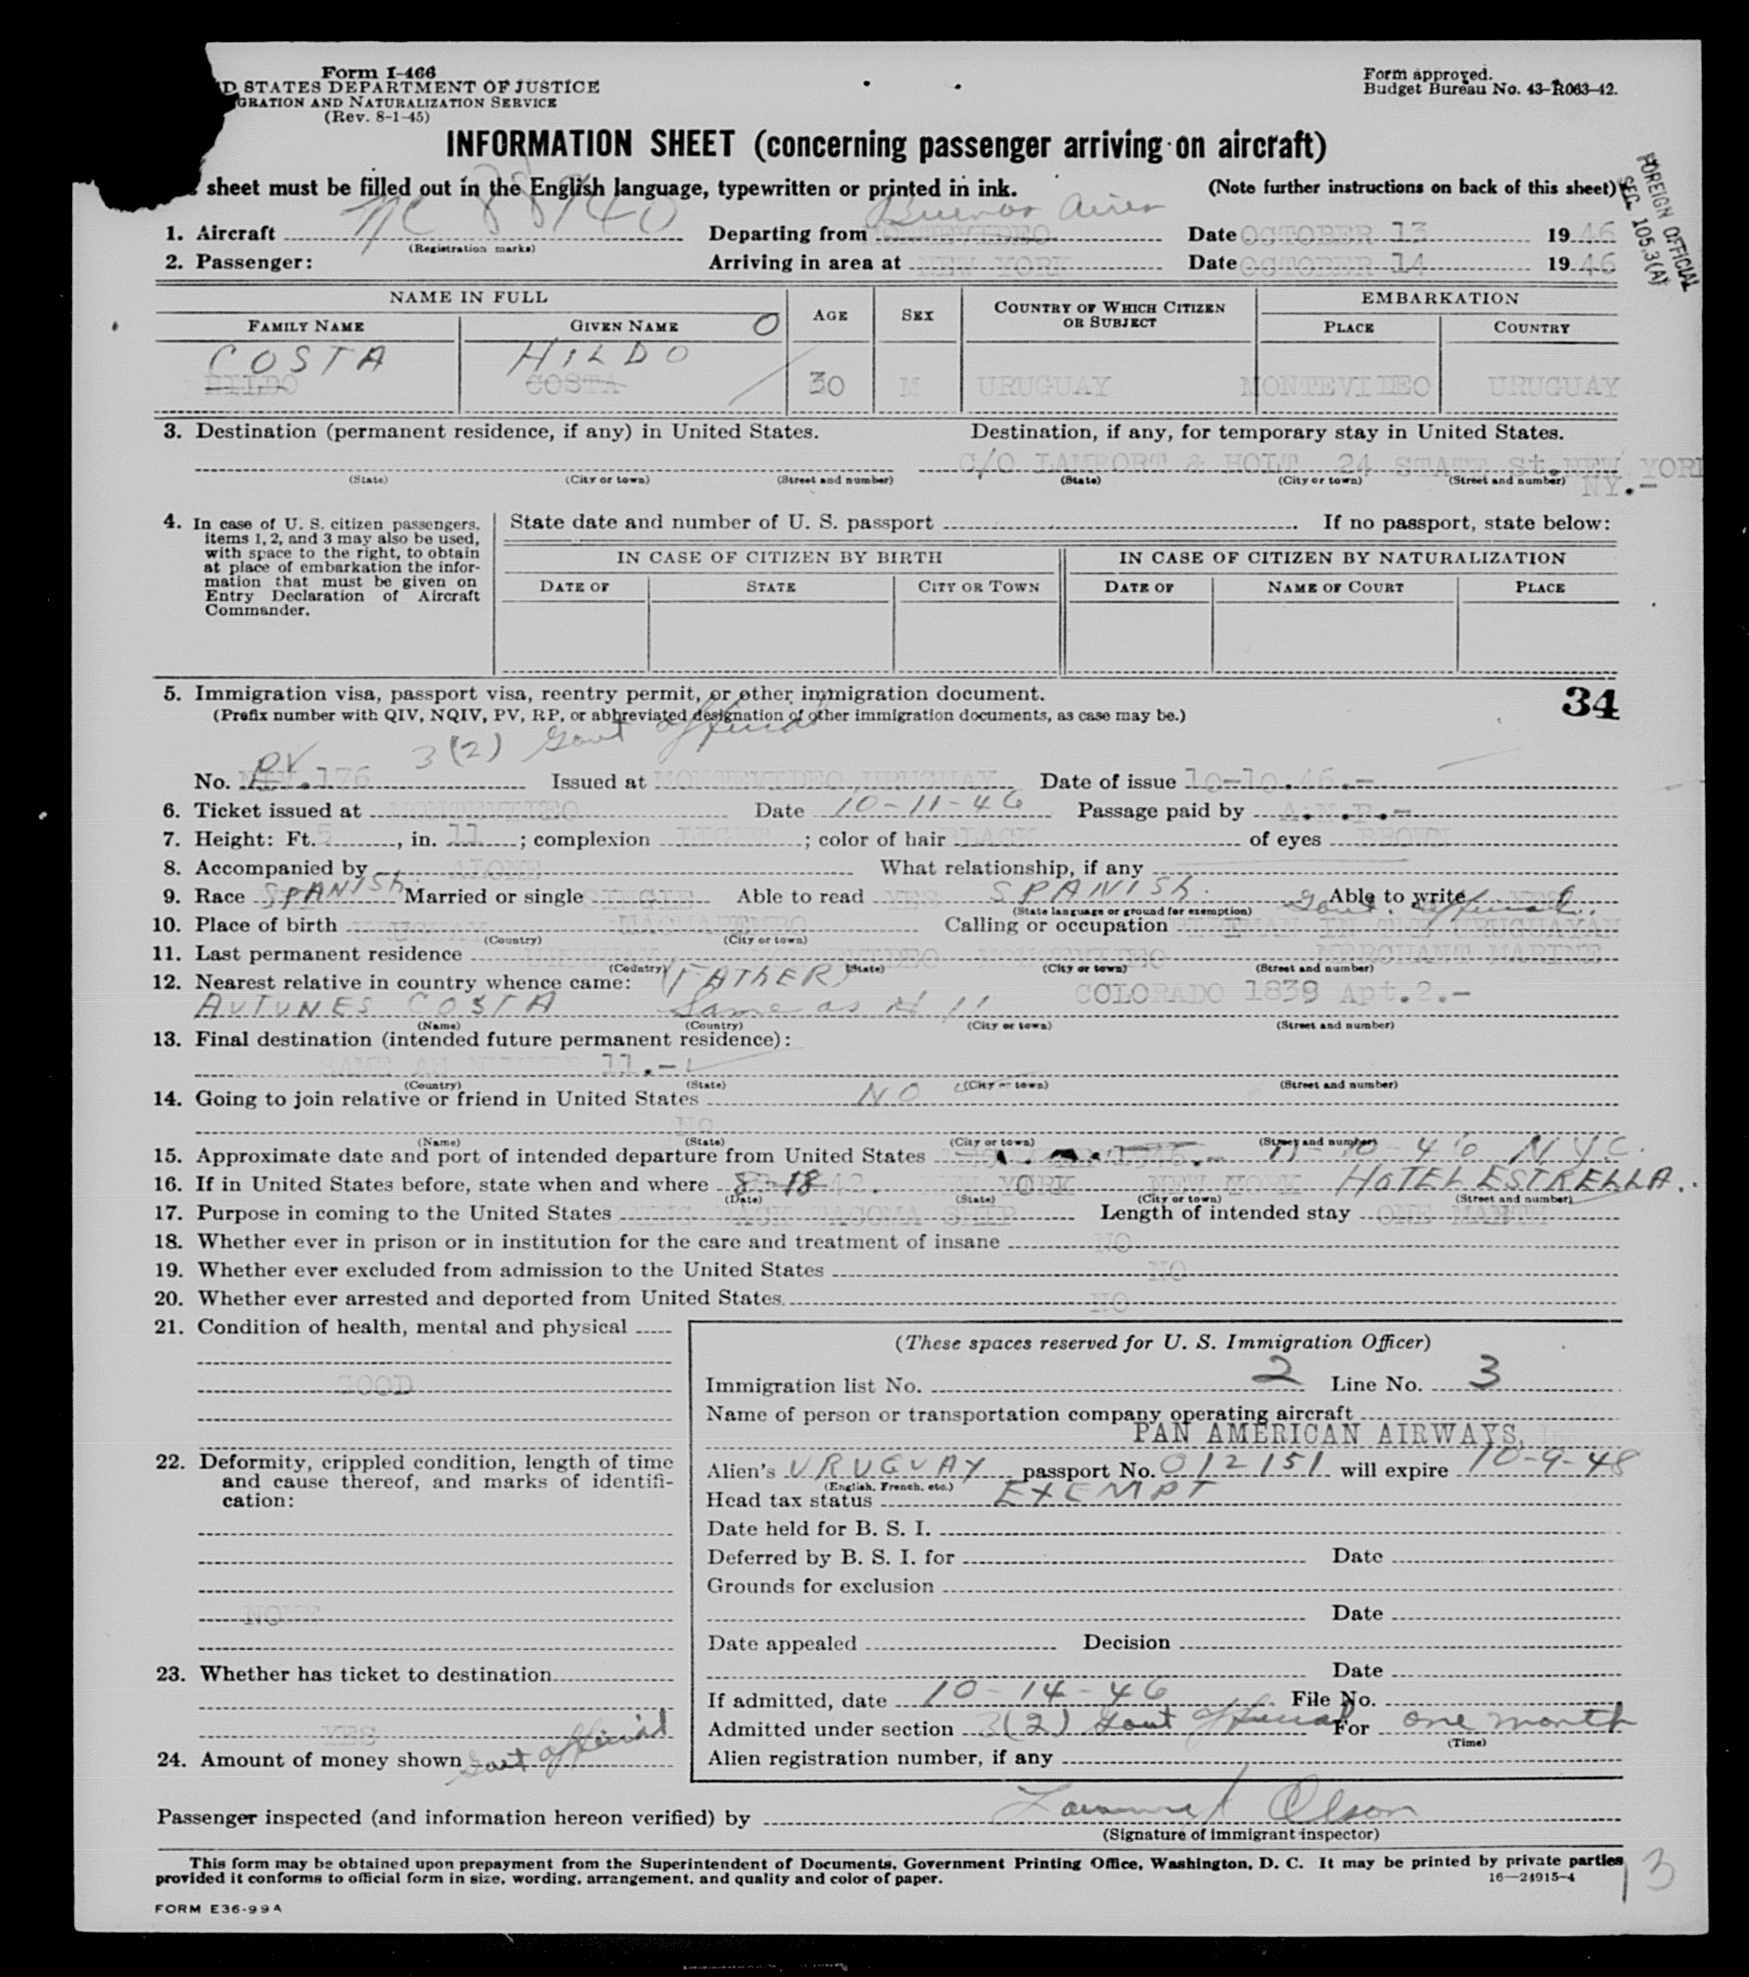 Form I-466
D STATES DEPARTMENT OF JUSTICE
GRATION AND NATURALIZATION SERVICE
(Rev. 8-1-45)
Form approved.
Budget Bureau No. 43-R063-42.
INFORMATION SHEET (concerning passenger arriving on aircraft)
sheet must be filled out in the English language, typewritten or printed in ink. (Note further instructions on back of this sheet)
FOREIGN OFFICIAL
SEC. 105.3(A)
Buenos Aires
1. Aircraft NC 88940 Departing from MONTEVIDEO Date OCTOBER 13 1946
(Registration marks)
2. Passenger: Arriving in area at NEW YORK Date OCTOBER 14 1946
NAME IN FULL AGE SEX COUNTRY OF WHICH CITIZEN OR SUBJECT EMBARKATION
FAMILY NAME GIVEN NAME O PLACE COUNTRY
COSTA HILDO
HILDO COSTA 30 M URUGUAY MONTEVIDEO URUGUAY
3. Destination (permanent residence, if any) in United States. Destination, if any, for temporary stay in United States.
C/O LAMPORT & HOLT 24 STATE St. NEW YORK
NY.-
(State) (City or town) (Street and number) (State) (City or town) (Street and number)
4. In case of U. S. citizen passengers, items 1, 2, and 3 may also be used, with space to the right, to obtain at place of embarkation the information that must be given on Entry Declaration of Aircraft Commander.
State date and number of U. S. passport . If no passport, state below:
IN CASE OF CITIZEN BY BIRTH IN CASE OF CITIZEN BY NATURALIZATION
DATE OF STATE CITY OR TOWN DATE OF NAME OF COURT PLACE
5. Immigration visa, passport visa, reentry permit, or other immigration document.
34
(Prefix number with QIV, NQIV, PV, RP, or abbreviated designation of other immigration documents, as case may be.)
PV 3(2) Govt official
No. 176 Issued at MONTEVIDEO, URUGUAY Date of issue 10-10.46.-
6. Ticket issued at MONTEVIDEO Date 10-11-46 Passage paid by A.N.P.-
7. Height: Ft. 5, in. 11; complexion LIGHT; color of hair BLACK of eyes BROWN
8. Accompanied by ALONE What relationship, if any
9. Race SPANISH Married or single SINGLE Able to read YES SPANISH. Able to write YES
(State language or ground for exemption) Govt. official.
10. Place of birth URUGUAY Calling or occupation URUGUAYAN
(Country) (City or town)
11. Last permanent residence URUGUAY MONTEVIDEO MONTEVIDEO MERCHANT MARINE
(Country) (State) (City or town) (Street and number)
12. Nearest relative in country whence came: (FATHER) COLORADO 1839 Apt.2.-
AUTUNES COSTA Same as # 11
(Name) (Country) (City or town) (Street and number)
13. Final destination (intended future permanent residence):
SAME AS NUMBER 11.-
(Country) (State) (City or town) (Street and number)
14. Going to join relative or friend in United States NO
NO
(Name) (State) (City or town) (Street and number)
15. Approximate date and port of intended departure from United States 11-10-46 N.Y.C.
16. If in United States before, state when and where 8-18 42. NEW YORK NEW YORK HOTEL ESTRELLA.
(Date) (State) (City or town) (Street and number)
17. Purpose in coming to the United States BRING BACK TACOMA SHIP Length of intended stay ONE MONTH
18. Whether ever in prison or in institution for the care and treatment of insane NO
19. Whether ever excluded from admission to the United States NO
20. Whether ever arrested and deported from United States NO
21. Condition of health, mental and physical
GOOD
22. Deformity, crippled condition, length of time and cause thereof, and marks of identification:
NONE
23. Whether has ticket to destination
YES
24. Amount of money shown Govt official
(These spaces reserved for U. S. Immigration Officer)
Immigration list No. 2 Line No. 3
Name of person or transportation company operating aircraft
PAN AMERICAN AIRWAYS,
Alien's URUGUAY passport No. 012151 will expire 10-9-48
(English, French, etc.)
Head tax status EXEMPT
Date held for B. S. I.
Deferred by B. S. I. for Date
Grounds for exclusion
Date
Date appealed Decision
Date
If admitted, date 10-14-46 File No.
Admitted under section 3(2) Govt Official For one month
(Time)
Alien registration number, if any
Passenger inspected (and information hereon verified) by Olson
(Signature of immigrant inspector)
This form may be obtained upon prepayment from the Superintendent of Documents, Government Printing Office, Washington, D. C. It may be printed by private parties
provided it conforms to official form in size, wording, arrangement, and quality and color of paper. 16—24915-4
13
FORM E36-99A